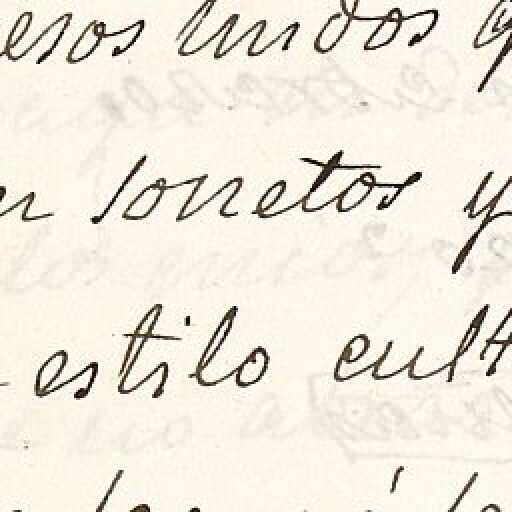 esos lindos q
en sonetos y
estilo cult